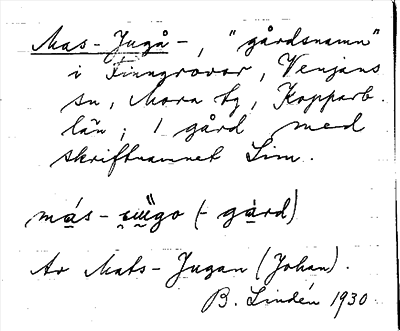 Mas-Jugå-, "gårdsnamn"
i Finngruvor, Venjans
sn, Mora tg, Kopparb.
län; 1 gård med
skriftnamnet Lim.
más- go (- gård)
Av Mats-Jugan (Johan).
B. Lindén 1930